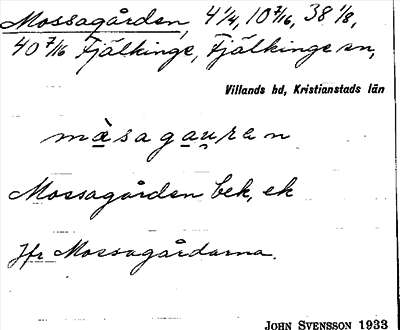 Mossagården, 4 1/4, 10 7/16, 38 1/8,
40 7/16 Fjälkinge, Fjälkinge sn,
Villands hd, Kristianstads län
måsagau̯ren
Mossagården bek, ek
Jfr Mossagårdarna.
JOHN SVENSSON 1933